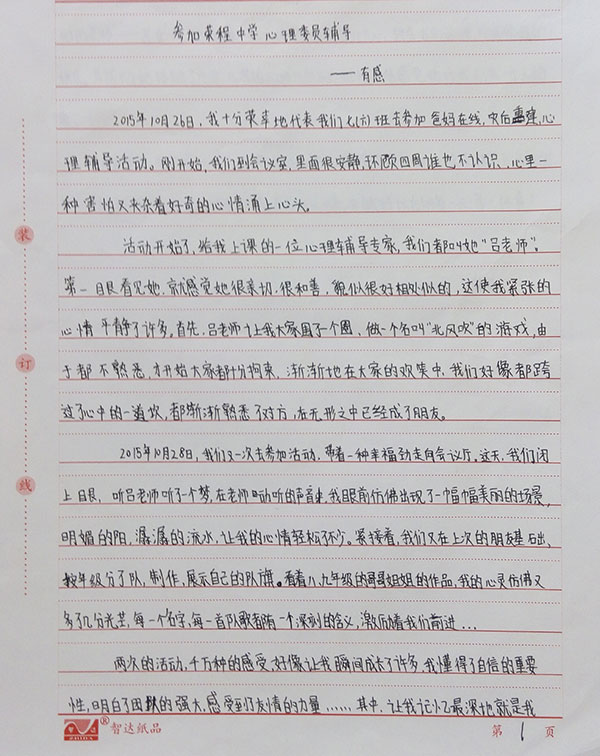 参加荣程中学心理委员辅导
——有感
2015年10月26日,我十分荣幸地代表我们七(六)班去参加爸妈在线,灾后重建,心
理辅导活动。刚开始,我们到会议室,里面很安静,环顾四周谁也不认识,心里一
种害怕又夹杂着好奇的心情涌上心头。
活动开始了,给我上课的一位心理辅导专家,我们都叫她"吕老师"。
第一眼看见她,就感受她很亲切、很和善,貌似很好相处似的,这使我紧张的
心情平静了许多。首先,吕老师让我大家围了一个圈,做一个名叫"北风吹"的游戏,由
于都不熟悉,才开始大家都十分拘束,渐渐地在大家的欢笑中,我们好像都跨
过了心中的一道坎,都渐渐熟悉了对方,在无形之中已经成了朋友。
2015年10月28日,我们又一次去参加活动,带着一种幸福劲走向会议厅。这天,我们闭
上眼,听吕老师听了一个梦,在老师动听的声音里,我眼前仿佛出现了一幅幅美丽的场景,
明媚的阳,潺潺的流水,让我的心情轻松了不少。紧接着,我们又在上次的朋友基础,
按年级分了队,制作,展示自己的队旗。看着八、九年级的哥哥姐姐的作品,我的心灵仿佛又
多了几分光芒,每一个名字,每一首队歌都有一个深刻的含义,激励着我们前进...
两次的活动,千万种的感受,好像让我瞬间成长了许多,我懂得了自信的重要
性,明白了团队的强大,感受到了友情的力量……其中,让我记忆最深地就是我
装
订
线
智达
ZHIDA
®
智达纸品
第 1 页